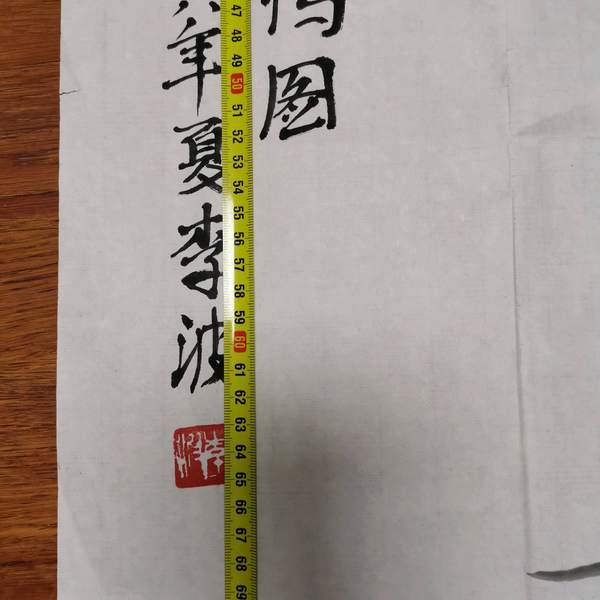 图
年夏李波
47
48
49
50
51
52
53
54
55
56
57
58
59
60
61
62
63
64
65
66
67
68
69